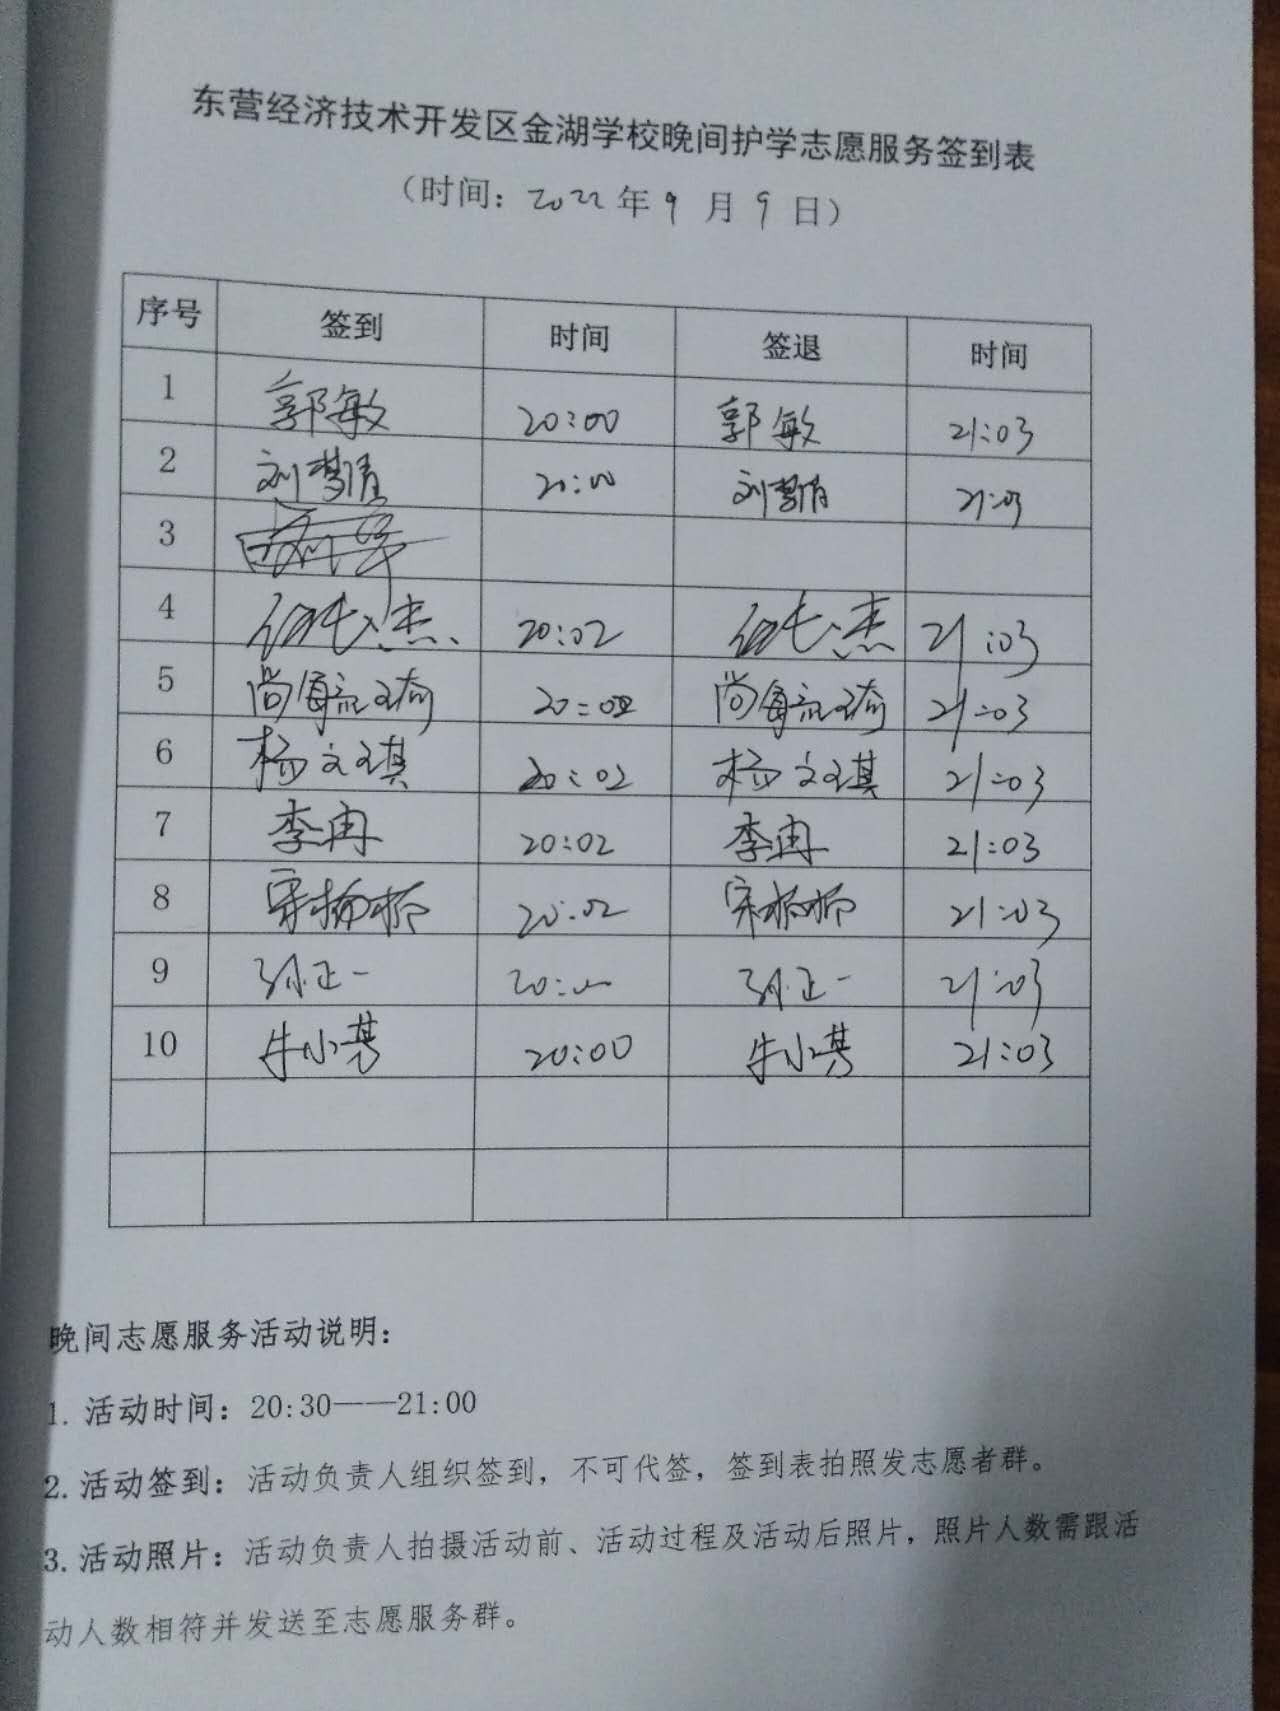 东营经济技术开发区金湖学校晚间护学志愿服务签到表
（时间：2022年9月9日）
序号 签到 时间 签退 时间
1 郭敏 20:00 郭敏 21:03
2 刘梦倩 20:00 刘梦倩 21:03
3
4 20:02 21:03
5 尚海 20:02 尚海 21:03
6 杨文琪 20:02 杨文琪 21:03
7 李冉 20:02 李冉 21:03
8 宋杨柳 20:02 宋杨柳 21:03
9 孙正一 孙正一 21:03
10 牛小萁 20:00 牛小萁 21:03
晚间志愿服务活动说明：
1. 活动时间：20:30——21:00
2. 活动签到：活动负责人组织签到，不可代签，签到表拍照发志愿者群。
3. 活动照片：活动负责人拍摄活动前、活动过程及活动后照片，照片人数需跟活
动人数相符并发送至志愿服务群。